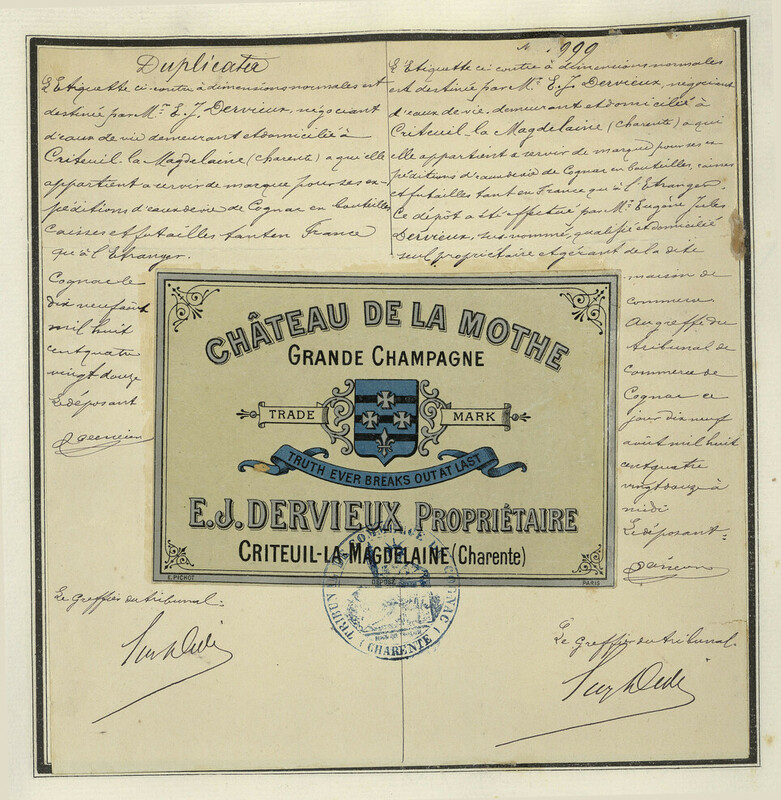 Duplicata
L'Etiquette ci contre à dimensions normales est
destinée par Mr. E. J. Dervieux, négociant
d'eaux de vie demeurant et domicilié à
Criteuil-la Magdelaine (Charente) a qui elle
appartient a servir de marque pour ses ex-
péditions d'eaux de vie de Cognac en bouteilles,
caisses et futailles tant en France
qu'à l'Etranger.
Cognac le
dix neuf août
mil huit
cent quatre
vingt douze
Le déposant
Le Greffier du tribunal:
N° 999
L'Etiquette ci contre à dimensions normales
est destinée par Mr. E. J. Dervieux, négociant
d'eaux de vie, demeurant et domicilié à
Criteuil-la Magdelaine (Charente) a qui
elle appartient a servir de marque pour ses ex
péditions d'eaux de vie de Cognac en bouteilles, caisses
et futailles tant en France qu'à l'Etranger.
Ce dépôt a été effectué par Mr. Eugène Jules
Dervieux, sus nommé, qualifié et domicilié
seul propriétaire et gérant de la dite
maison de
commerce
Au greffe du
tribunal de
Commerce de
Cognac ce
jour dix neuf
août mil huit
cent quatre
vingt douze à
midi
Le déposant
Le Greffier du tribunal.
CHÂTEAU DE LA MOTHE
GRANDE CHAMPAGNE
TRADE MARK
TRUTH EVER BREAKS OUT AT LAST
E.J. DERVIEUX, PROPRIÉTAIRE
CRITEUIL-LA-MAGDELAINE (Charente)
E. PICHOT
DÉPOSÉ
PARIS
TRIBUNAL DE COMMERCE DE COGNAC
(CHARENTE)